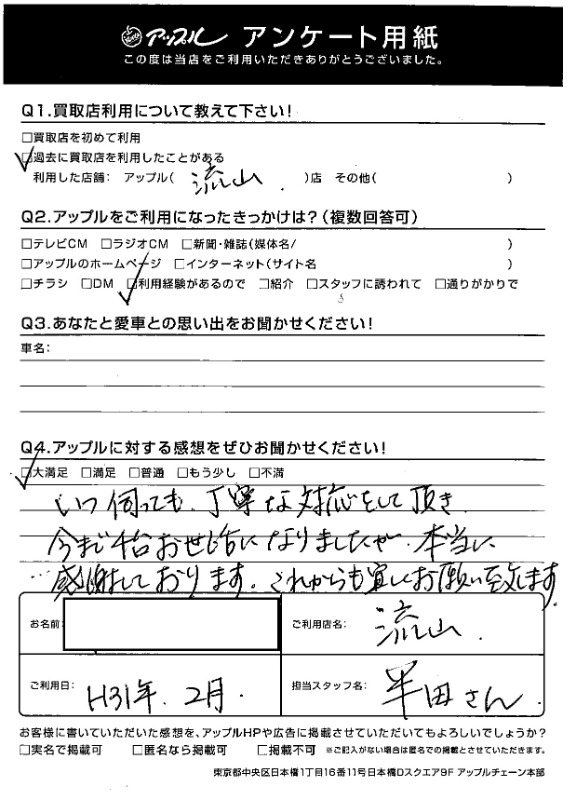 アップル アンケート用紙
この度は当店をご利用いただきありがとうございました。
Q1.買取店利用について教えて下さい!
□買取店を初めて利用
□過去に買取店を利用したことがある
利用した店舗: アップル( 流山 )店 その他( )
Q2.アップルをご利用になったきっかけは?(複数回答可)
□テレビCM □ラジオCM □新聞・雑誌(媒体名/ )
□アップルのホームページ □インターネット(サイト名 )
□チラシ □DM □利用経験があるので □紹介 □スタッフに誘われて □通りがかりで
Q3.あなたと愛車との思い出をお聞かせください!
車名:
Q4.アップルに対する感想をぜひお聞かせください!
□大満足 □満足 □普通 □もう少し □不満
いつ伺っても、丁寧な対応をして頂き
今まで 台お世話になりましたが、本当に
感謝しております。これからも宜しくお願い致します。
お名前:
ご利用店名: 流山
ご利用日: H31年 2月
担当スタッフ名: 半田さん
お客様に書いていただいた感想を、アップルHPや広告に掲載させていただいてもよろしいでしょうか?
□実名で掲載可 □匿名なら掲載可 □掲載不可 ※ご記入がない場合は匿名での掲載とさせていただきます。
東京都中央区日本橋1丁目16番11号日本橋Dスクエア9F アップルチェーン本部